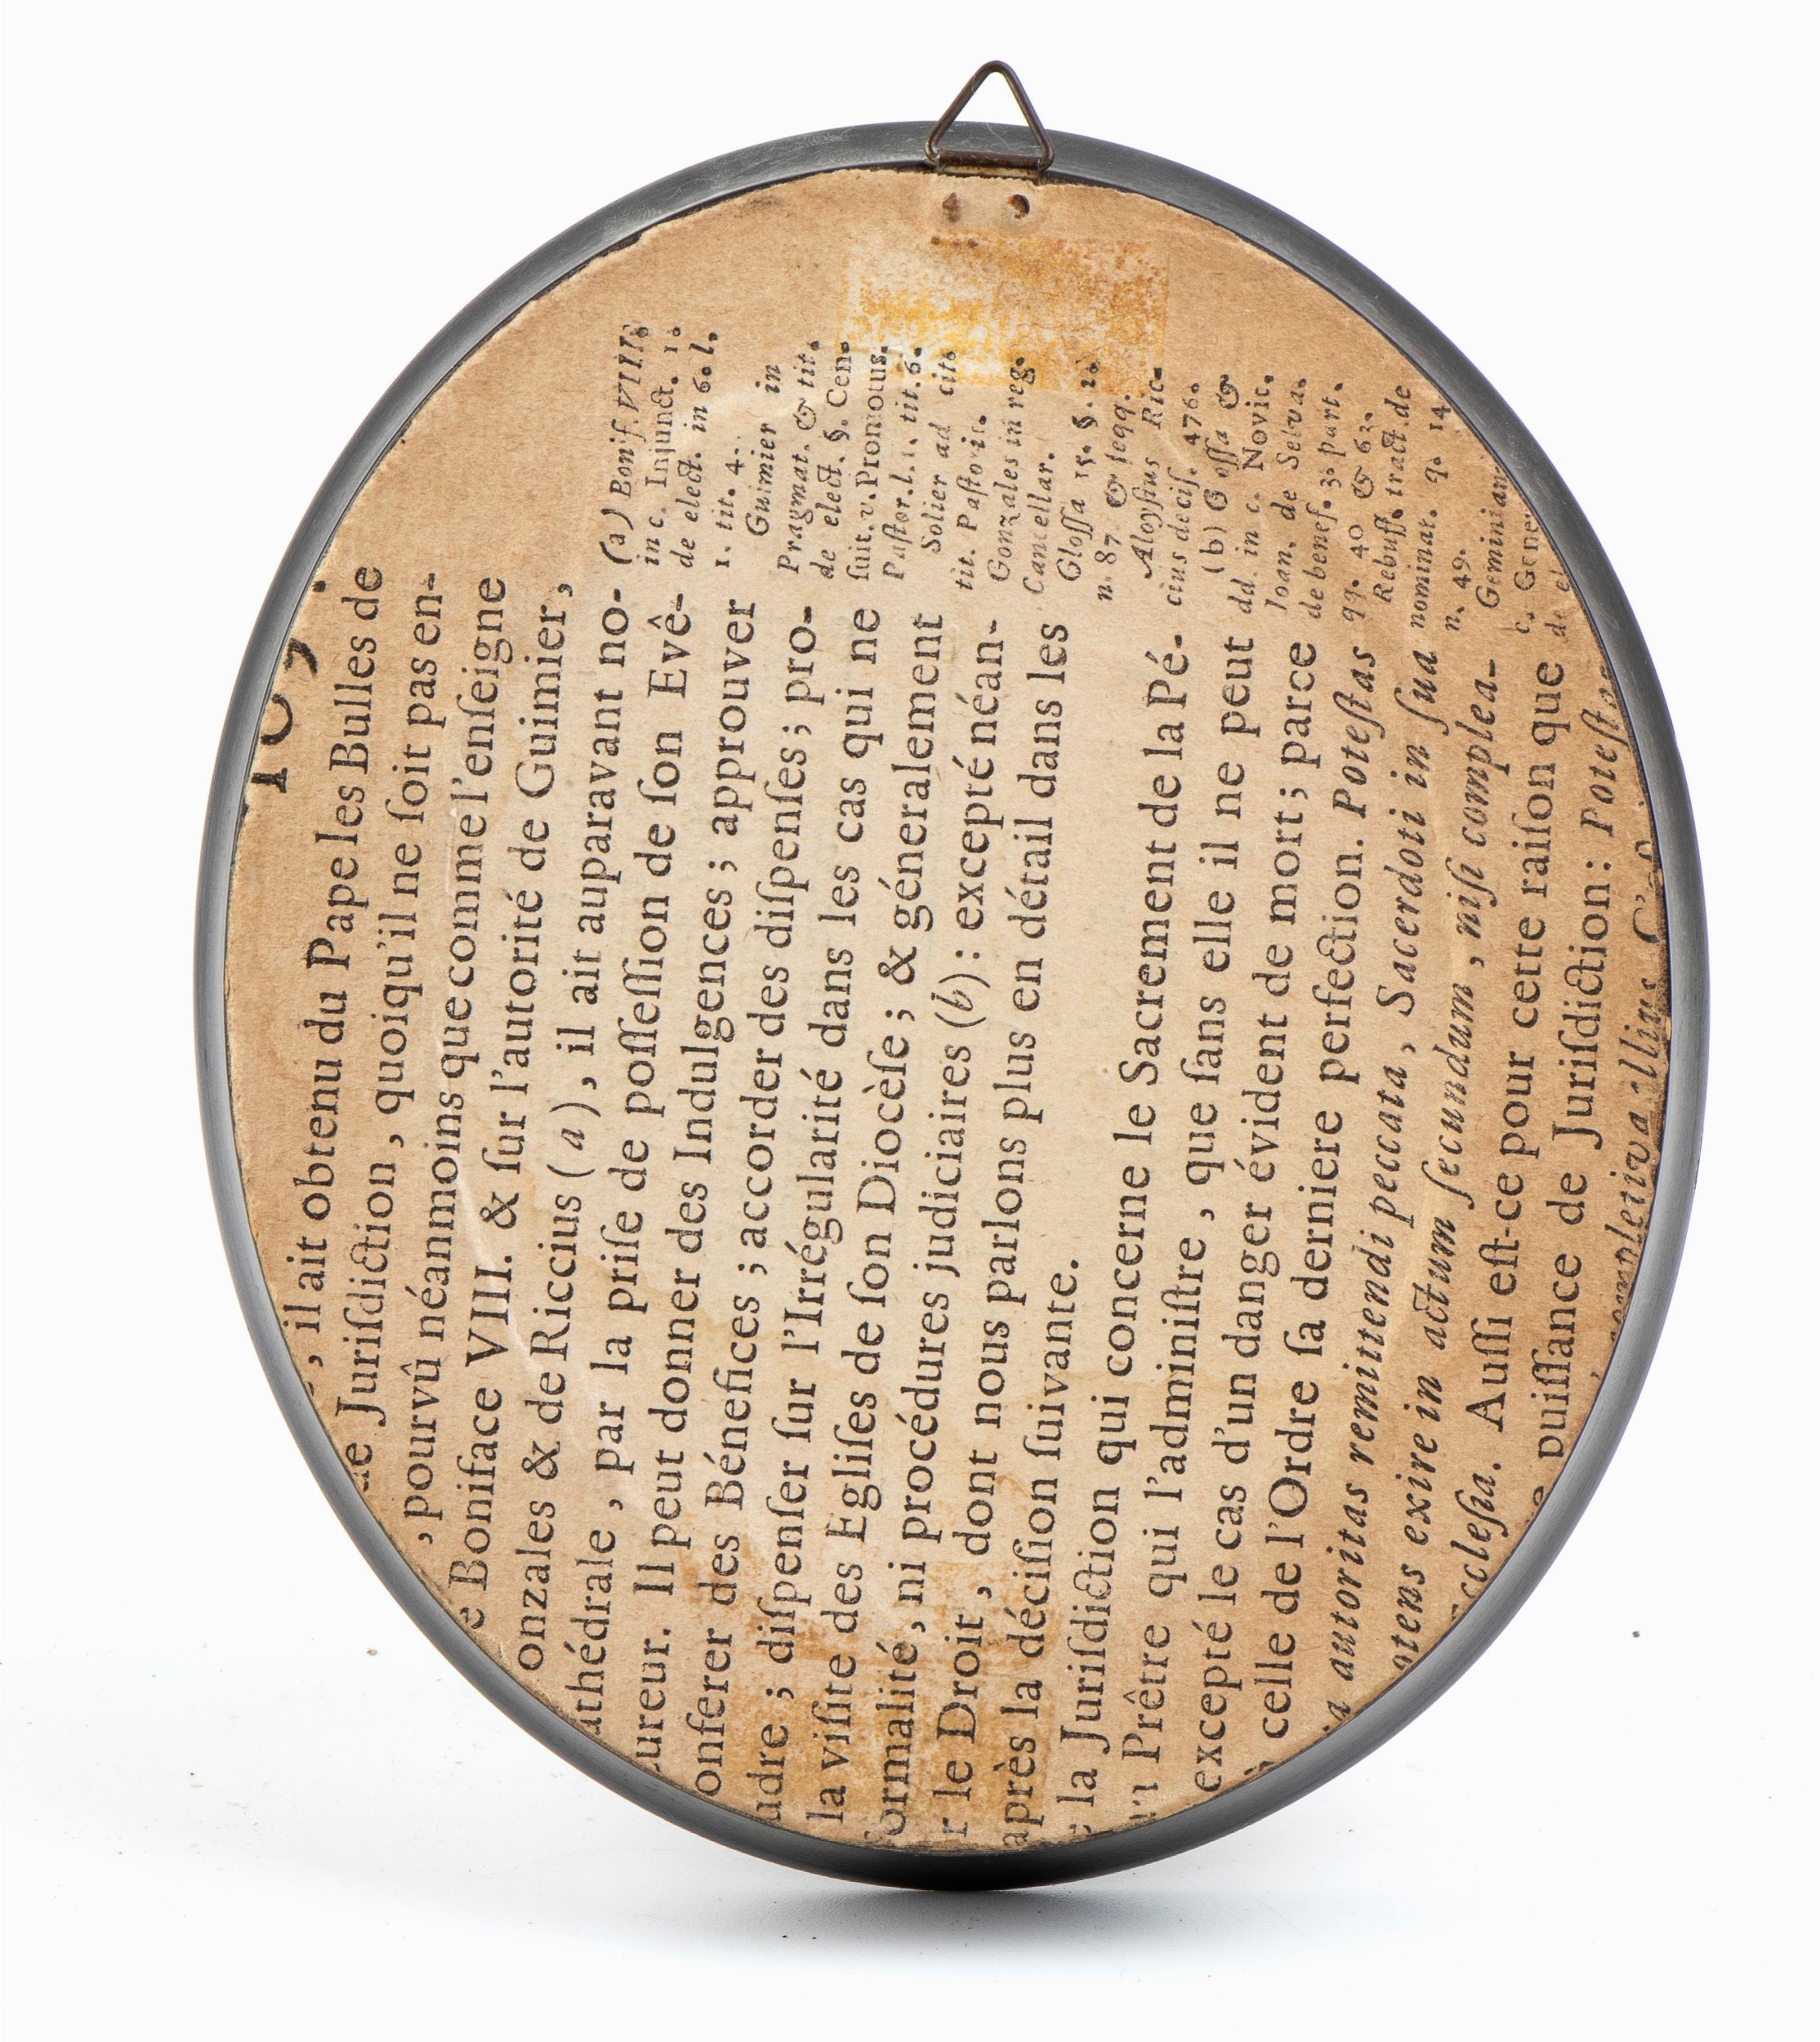 , il ait obtenu du Pape les Bulles de
Juriſdiction, quoiqu'il ne ſoit pas en-
, pourvû néanmoins que comme l'enſeigne
e Boniface VIII. & ſur l'autorité de Guimier,
onzales & de Riccius (a), il ait auparavant no-
athédrale, par la priſe de poſſeſſion de ſon Evê-
ureur. Il peut donner des Indulgences; approuver
onferer des Bénefices; accorder des diſpenſes; pro-
udre; diſpenſer ſur l'Irrégularité dans les cas qui ne
la viſite des Egliſes de ſon Diocèſe; & géneralement
ormalité, ni procédures judiciaires (b): excepté néan-
r le Droit, dont nous parlons plus en détail dans les
après la déciſion ſuivante.
la Juriſdiction qui concerne le Sacrement de la Pé-
n Prêtre qui l'adminiſtre, que ſans elle il ne peut
excepté le cas d'un danger évident de mort; parce
celle de l'Ordre ſa derniere perfection. Poteſtas
autoritas remittendi peccata, Sacerdoti in ſua
otens exire in actum ſecundum, niſi complea-
ccleſia. Auſſi eſt-ce pour cette raiſon que
puiſſance de Juriſdiction: Poteſtas
completiva illius C'
(a) Bonif. VIII.
in c. Injunct. 1.
de elect. in 6. l.
1. tit. 4.
Guimier in
Pragmat. & tit.
de elect. §. Cen-
ſuit. v. Promotus.
Paſtor. l. 1. tit. 6.
Solier ad cit.
tit. Paſtoris.
Gonzales in reg.
Cancellar.
Gloſſa 15. §. 1.
n. 87 & ſeqq.
Aloyſius Ric-
cius deciſ. 476.
(b) Gloſſa &
dd. in c. Novit.
Joan. de Selva.
de benef. 3. part.
qq. 40 & 63.
Rebuff. tract. de
nominat. q. 14.
n. 49.
Geminian
c. Gener
de el